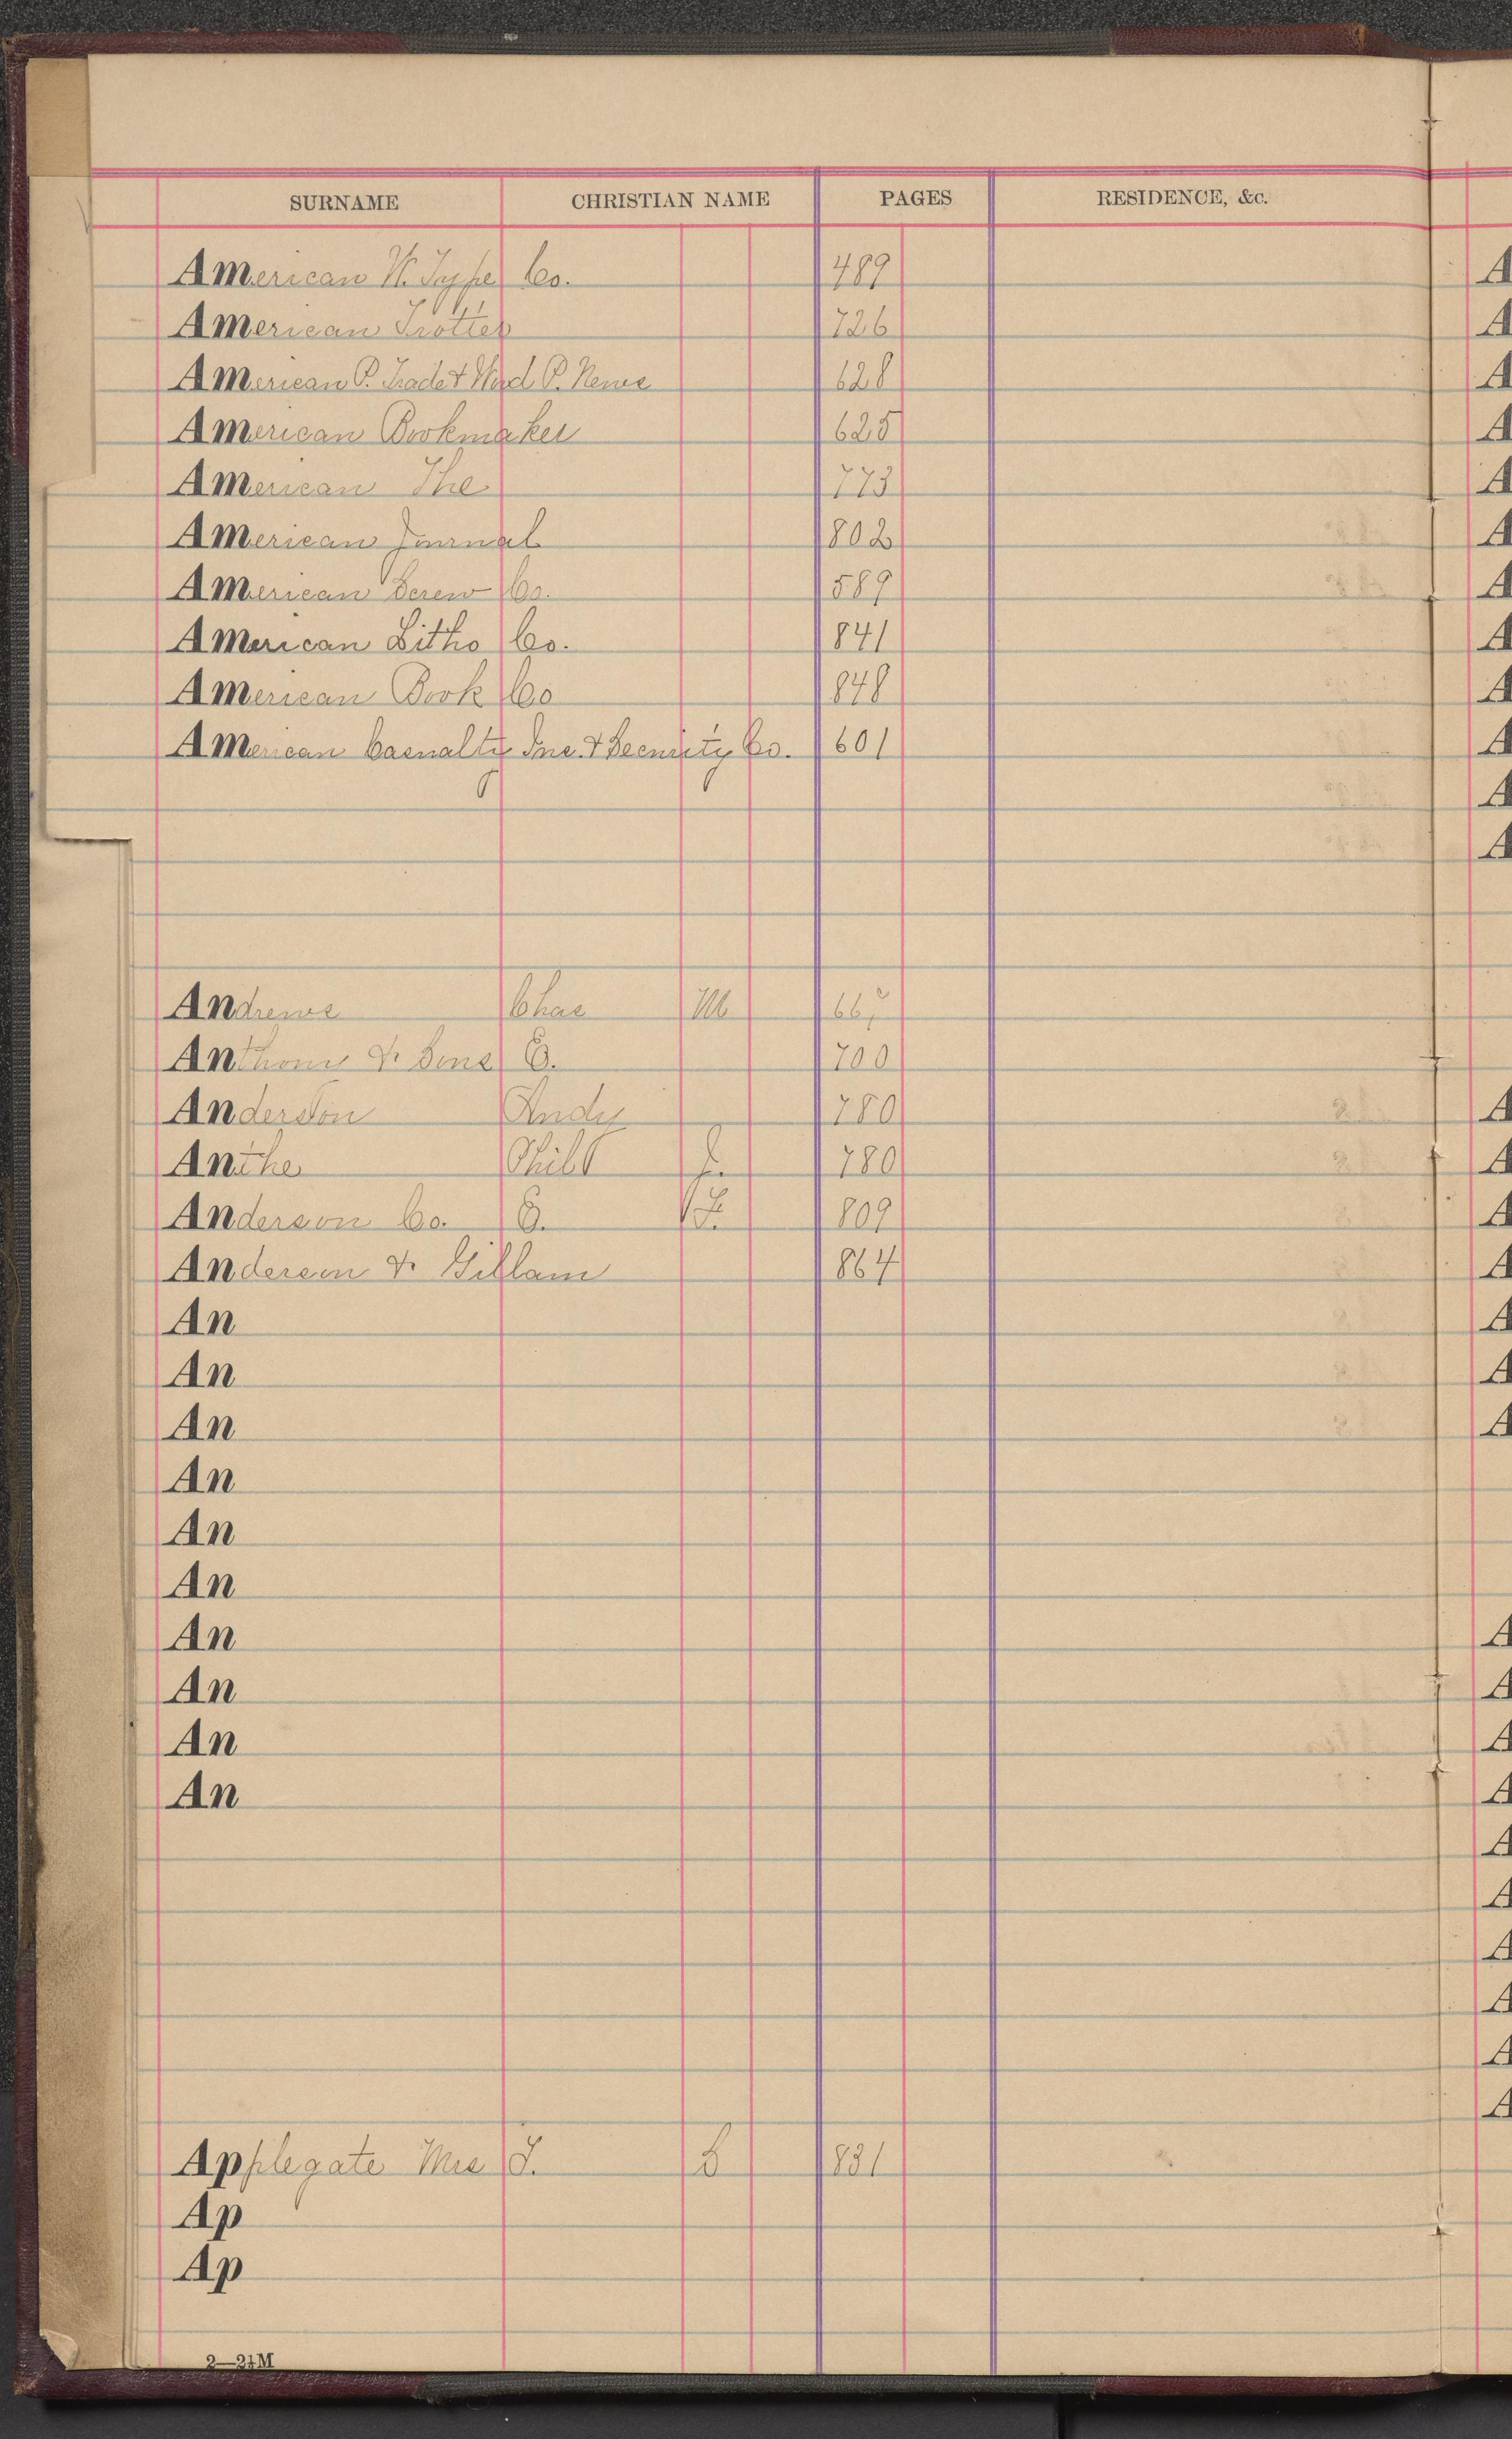 SURNAME CHRISTIAN NAME PAGES RESIDENCE, &c.
American W. Type Co. 489
American Trotter 726
American P. Trade & Wed P. News 628
American Bookmaker 625
American The 773
American Journal 802
American Screw Co. 589
American Litho Co. 841
American Book Co 848
American Casualty Ins. & Security Co. 601
Andrews Chas M 667
Anthony & Sons E. 700
Anderston Andy 780
Anthe Phil J. 780
Anderson Co. E. F. 809
Anderson & Gillam 864
An
An
An
An
An
An
An
An
An
An
Applegate Mrs J. S 831
Ap
Ap
2—2½M